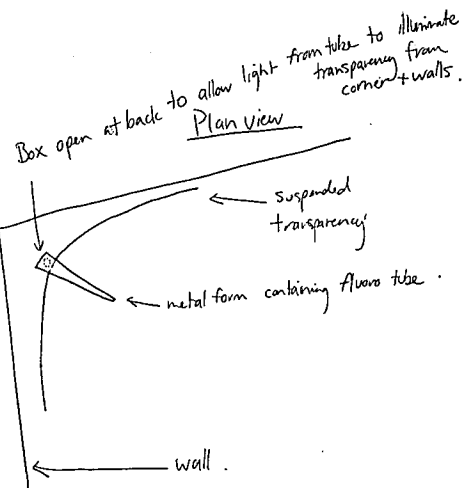 Box open at back to allow light from tube to illuminate
transparency from
corner + walls.
Plan view
suspended
transparency
metal form containing fluoro tube.
wall.